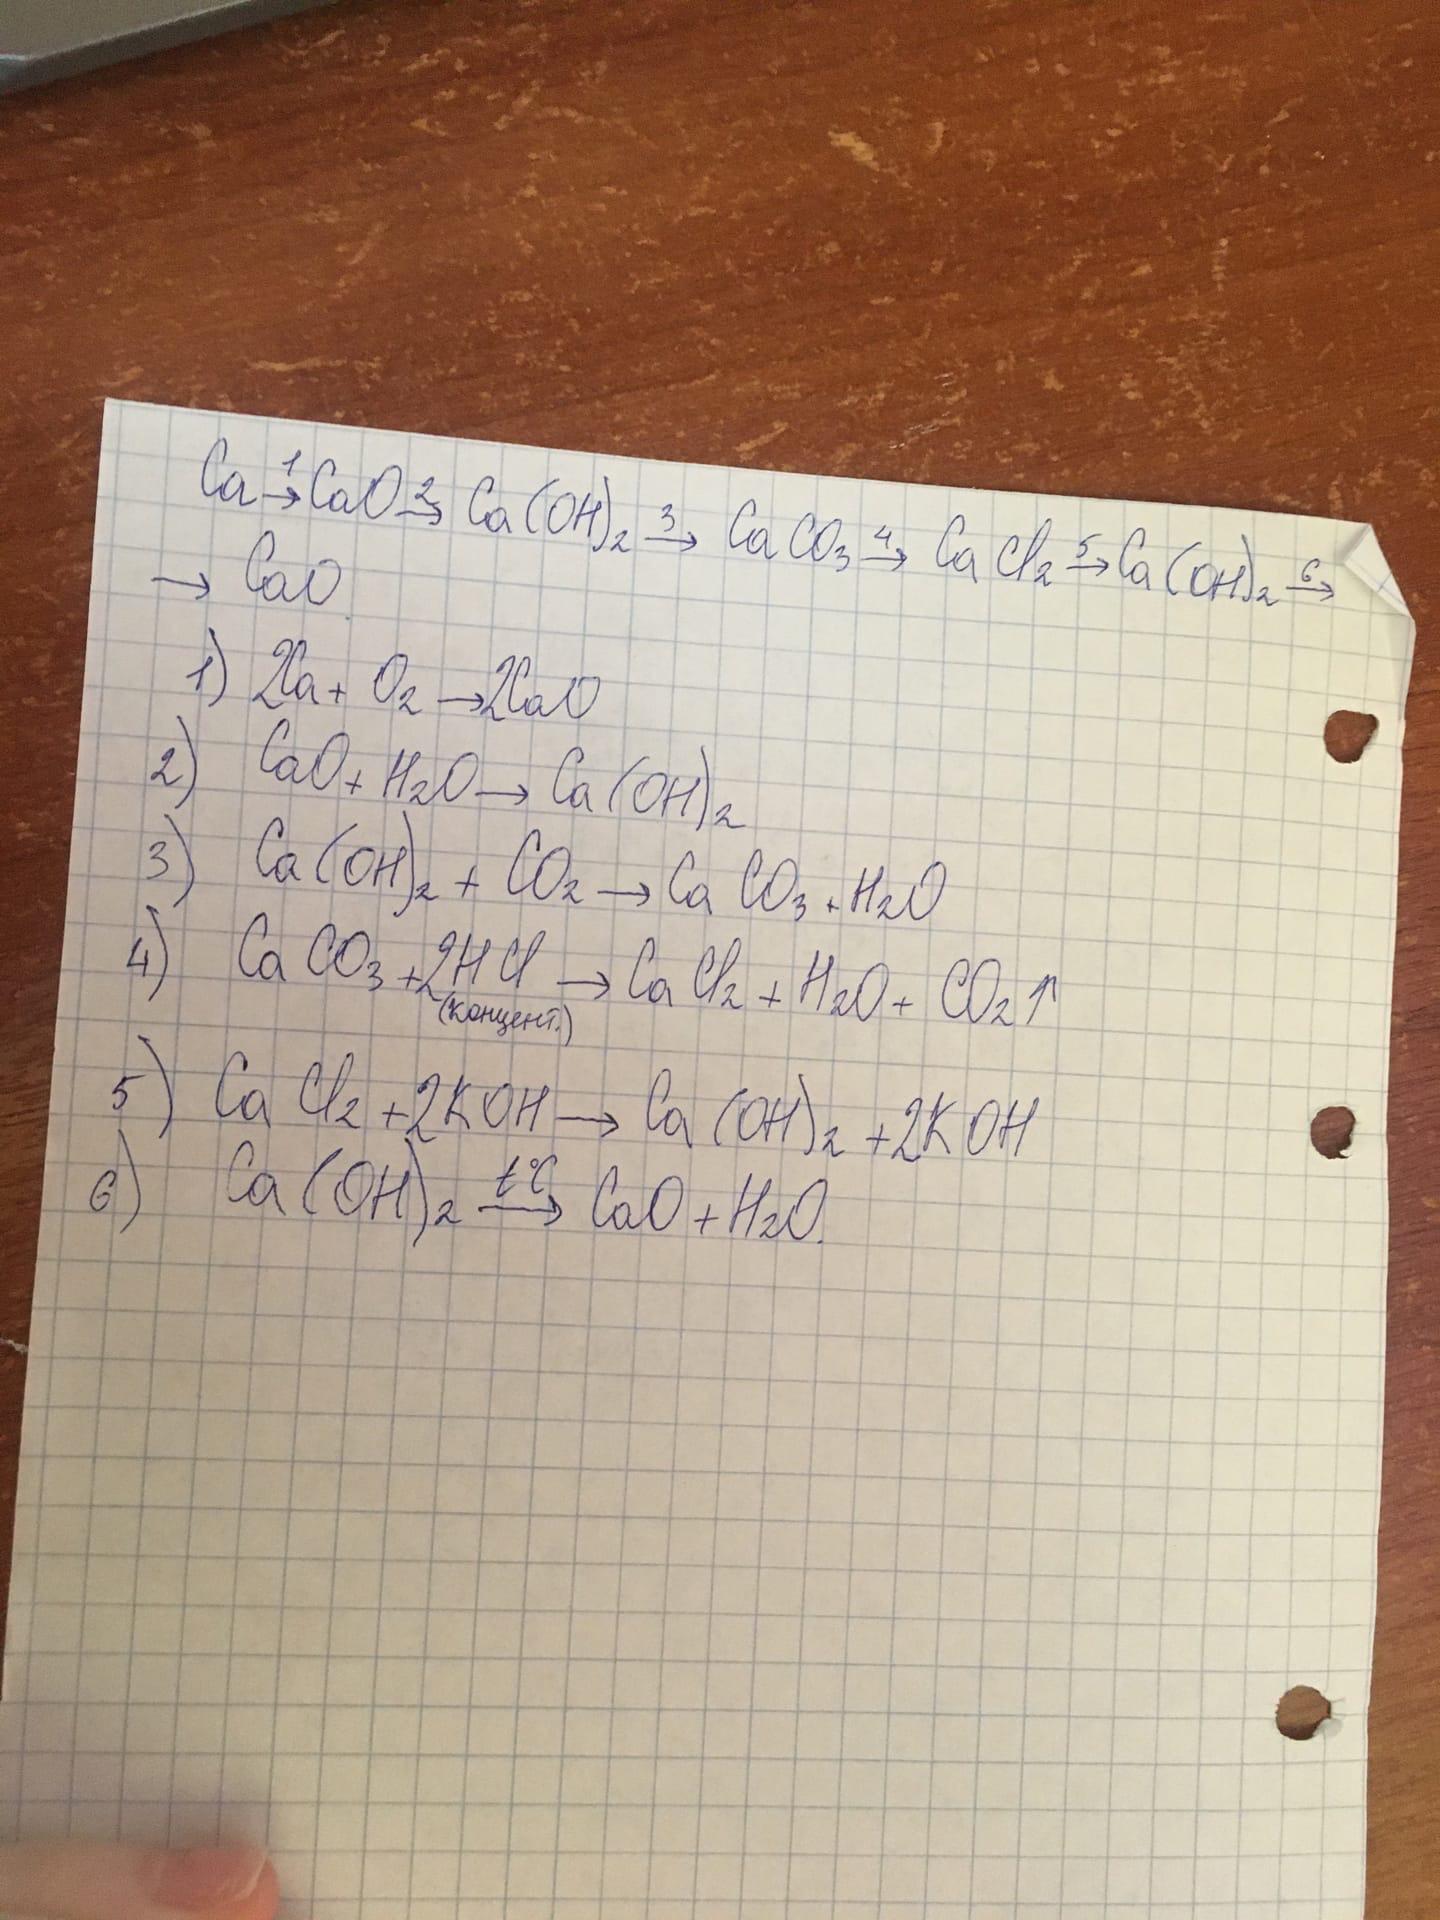 Ca →¹ CaO →² Ca(OH)₂ →³ CaCO₃ →⁴ CaCl₂ →⁵ Ca(OH)₂ →⁶
→ CaO
1) 2Ca + O₂ → 2CaO
2) CaO + H₂O → Ca(OH)₂
3) Ca(OH)₂ + CO₂ → CaCO₃ + H₂O
4) CaCO₃ + 2HCl → CaCl₂ + H₂O + CO₂↑
(концент.)
5) CaCl₂ + 2KOH → Ca(OH)₂ + 2KOH
6) Ca(OH)₂ t°C→ CaO + H₂O.